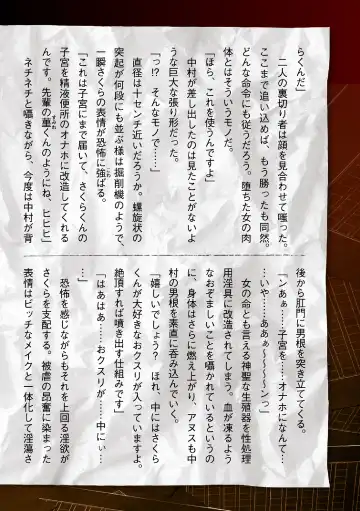 らくんだ」
　二人の裏切り者は顔を見合わせて嗤った。
ここまで追い込めば、もう勝ったも同然。
どんな命令にも従うだろう。堕ちた女の肉
体とはそういうモノだ。
「ほら、これを使うんですよ」
　中村が差し出したのは見たことがないよ
うな巨大な張り形だった。
「っ!?　そんなモノで……」
　直径は十センチ近いだろうか。螺旋状の
突起が何列にも並ぶ様は掘削機のようで、
一瞬さくらの表情が恐怖に強ばる。
「これは子宮にまで届いて、さくらくんの
子宮を精液便所のオナホに改造してくれる
んです。先輩の菫くんのようにね、ヒヒヒ」
　ネチネチと囁きながら、今度は中村が背
後から肛門に男根を突き立ててくる。
「ンあぁ……子宮を……オナホになんて…
…いや……ああぁ～～～～ンっ」
　女の命とも言える神聖な生殖器を性処理
用淫具に改造されてしまう。血が凍るよう
なおぞましいことを囁かれているというの
に、身体はさらに燃え上がり、アヌスも中
村の男根を素直に呑み込んでいく。
「嬉しいでしょう？　ほれ、中にはさくら
くんが大好きなおクスリが入っていますよ。
絶頂すれば噴き出す仕組みです」
「はあはあ……おクスリが……中にぃ…
…」
　恐怖を感じながらもそれを上回る淫欲が
さくらを支配する。被虐の昂奮に染まった
表情はビッチなメイクと一体化して淫蕩さ